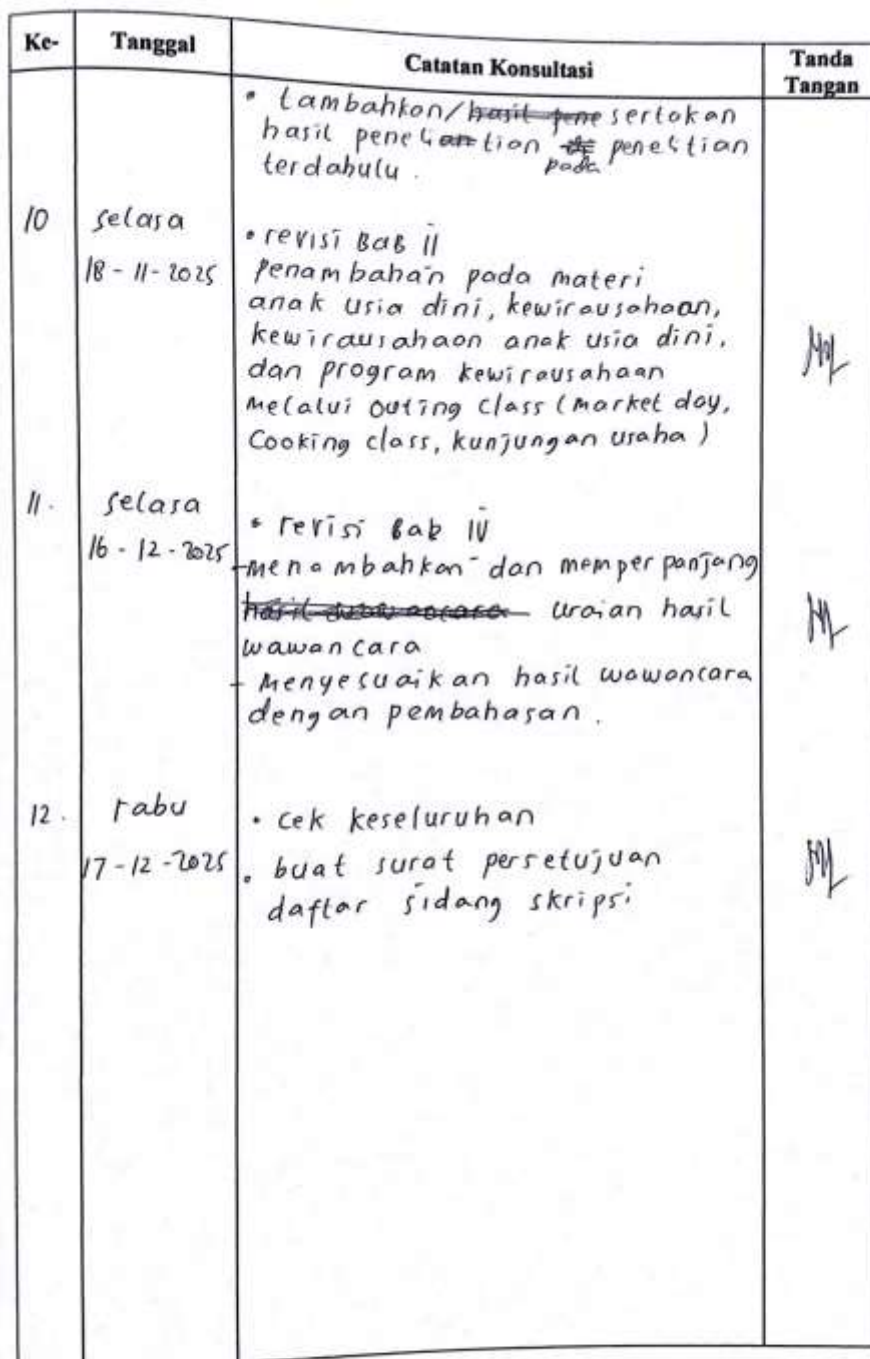 Ke- Tanggal Catatan Konsultasi Tanda Tangan
• tambahkan/hasil pene sertakan
hasil peneliantian pada penelitian
terdahulu.
10 selasa
18 - 11 - 2025
• revisi Bab II
penambahan pada materi
anak usia dini, kewirausahaan,
kewirausahaan anak usia dini,
dan program kewirausahaan
melalui outing class (market day,
Cooking class, kunjungan usaha)
11. selasa
16 - 12 - 2025
• revisi Bab IV
- menambahkan dan memperpanjang
hasil wawancara uraian hasil
wawancara
- Menyesuaikan hasil wawancara
dengan pembahasan.
12. rabu
17 - 12 - 2025
• cek keseluruhan
• buat surat persetujuan
daftar sidang skripsi